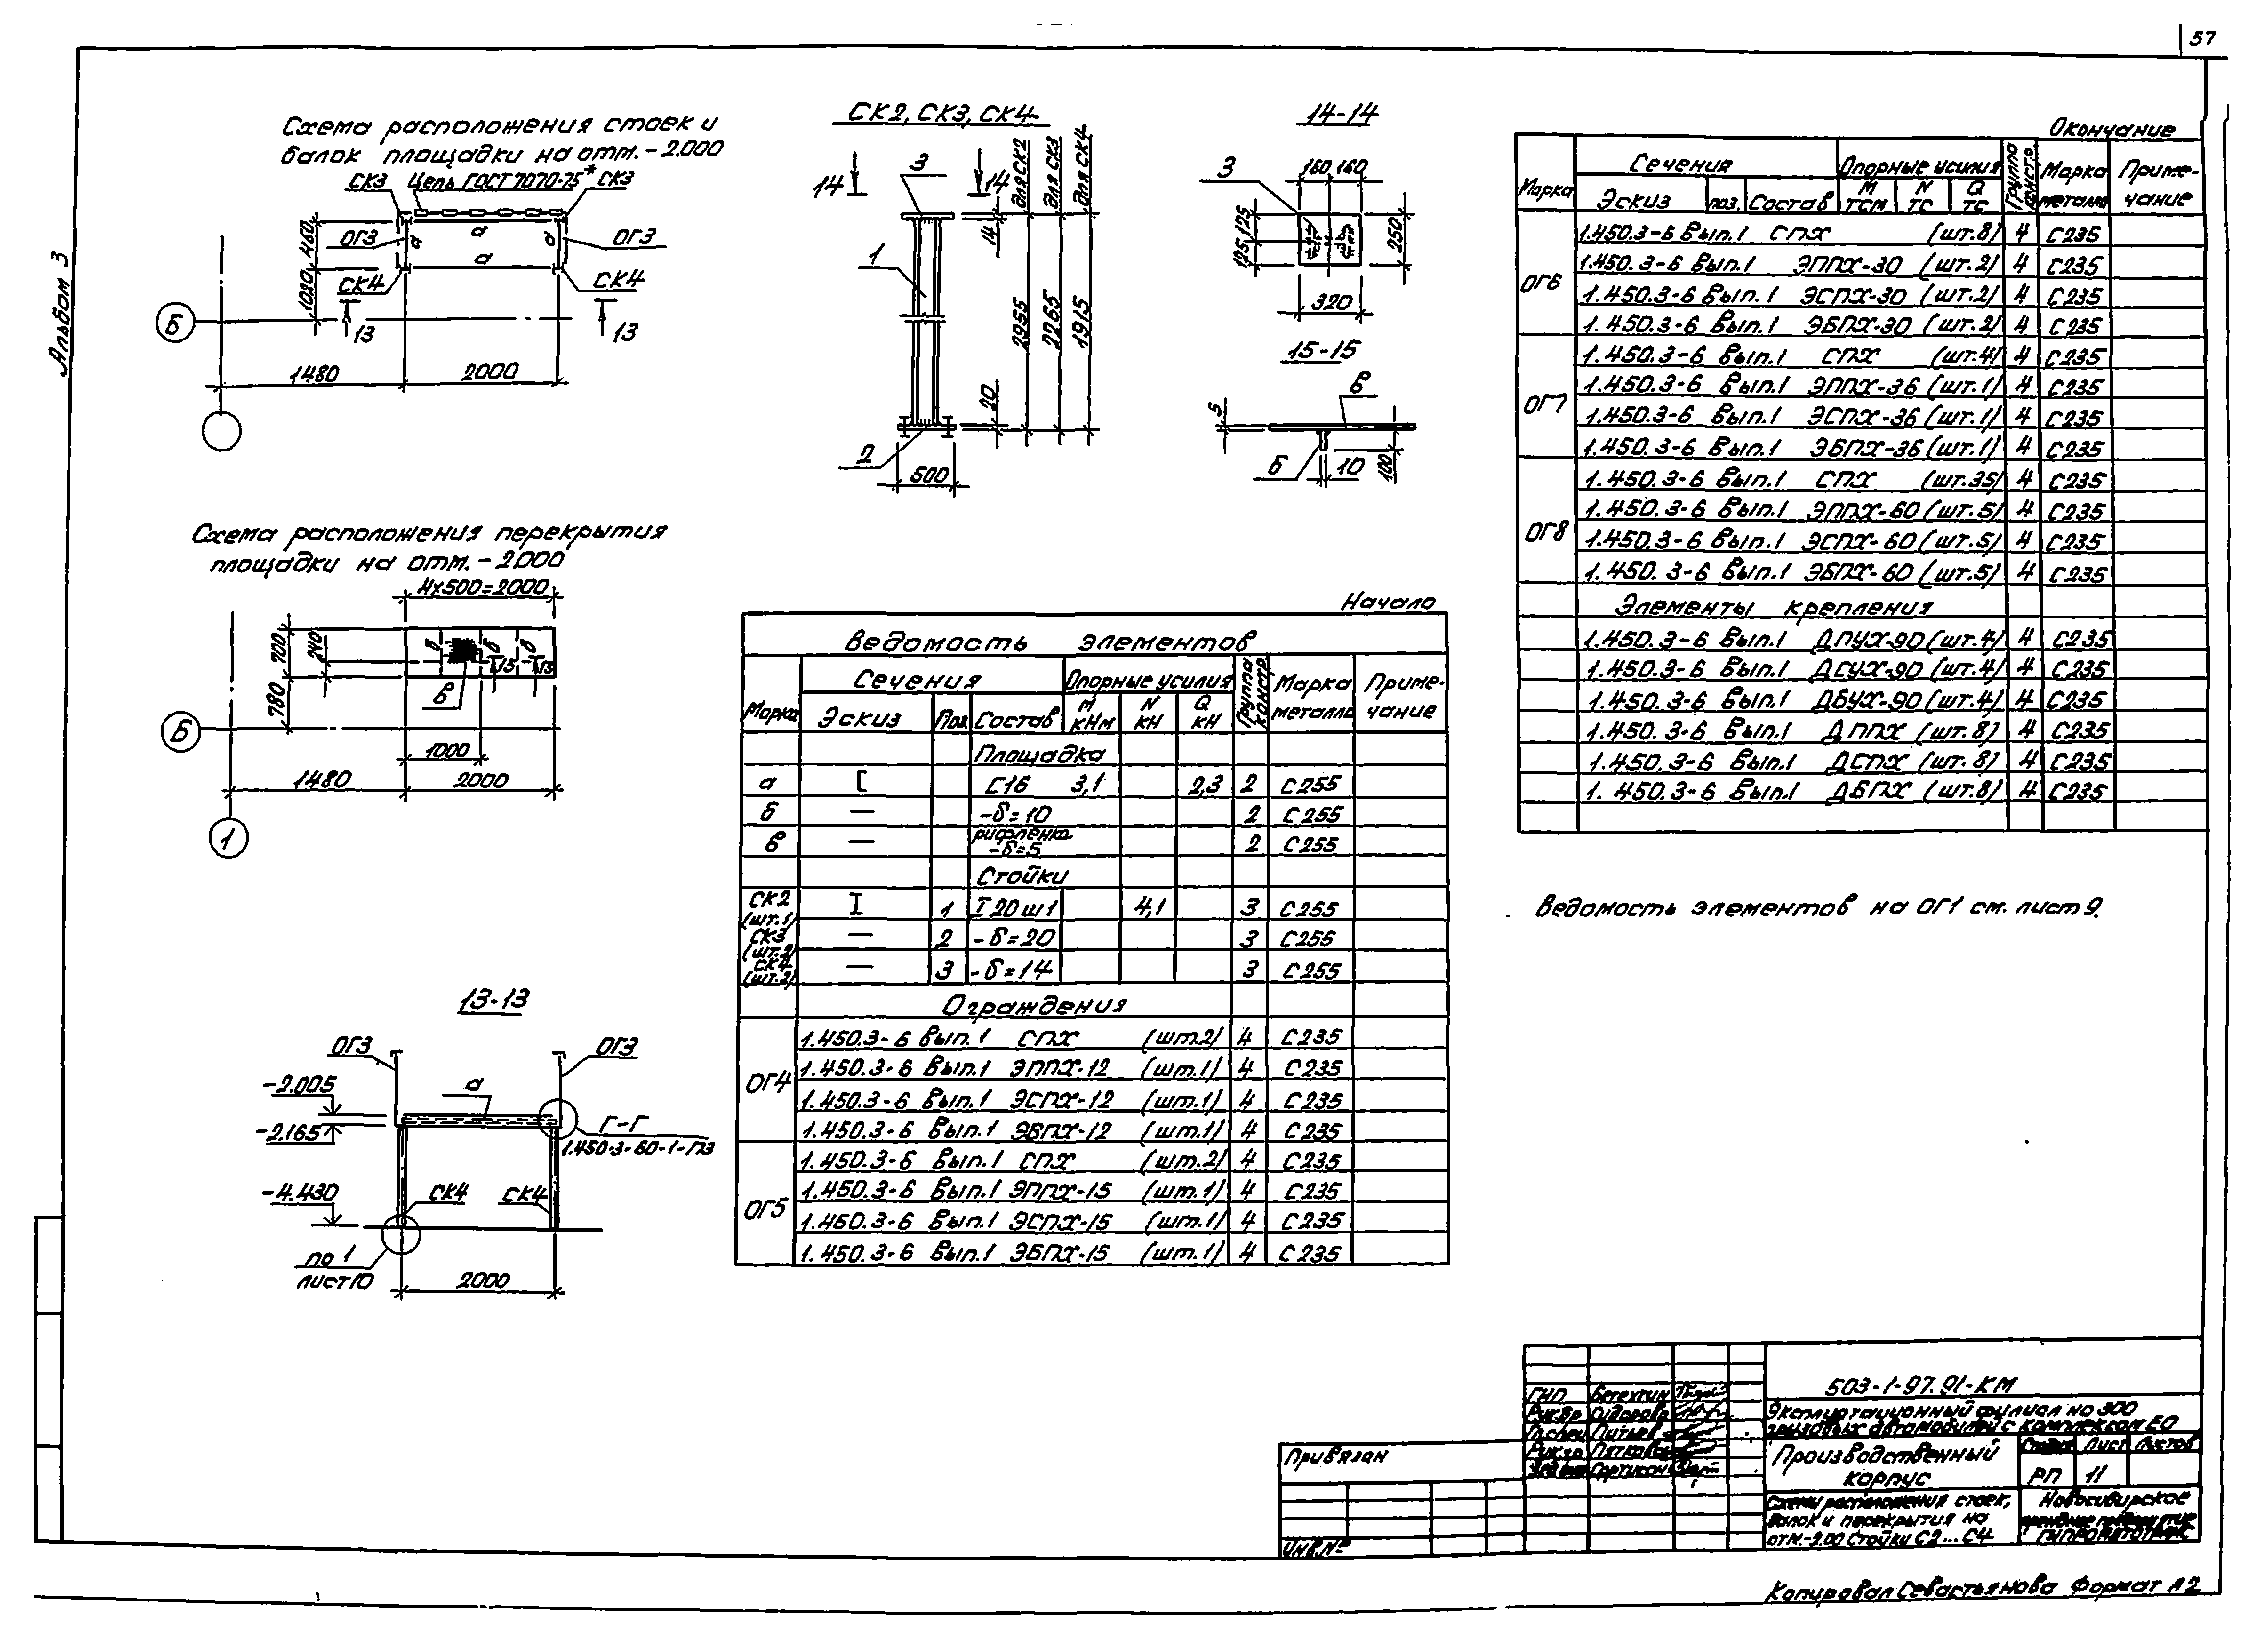 57
Альбом 3
Схема расположения стоек и
балок площадки на отм. -2.000
СК3 Цепь ГОСТ 7070-75* СК3
ОГ3 а а а ОГ3
460
1020
а
СК4 СК4
Б
13 13
1480 2000
Схема расположения перекрытия
площадки на отм. -2.000
4х500=2000
700 240
б б б
15 15
780
в
Б
1000
1480 2000
1
13-13
ОГ3 ОГ3
-2.005 а
Г-Г
-2.165
1.450.3-60-1-ПЗ
-4.430 СК4 СК4
по 1
лист 10
2000
СК2, СК3, СК4
14 3 14
для СК2 для СК3 для СК4
14
1
2955 2265 1915
20
2
500
14-14
3 160 160
125 125 250
320
15-15
в
5
б 10 100
Начало
Ведомость элементов
Марка Сечения Опорные усилия Группа констр. Марка металла Примечание
Эскиз Поз. Состав М кНм N кН Q кН
Площадка
а [ [16 3,1 2,3 2 С255
б — -δ=10 2 С255
в — рифленка -δ=5 2 С255
Стойки
СК2 (шт.1) I 1 I 20ш1 4,1 3 С255
СК3 (шт.2) — 2 -δ=20 3 С255
СК4 (шт.2) — 3 -δ=14 3 С255
Ограждения
ОГ4
1.450.3-6 Вып.1 СПХ (шт.2) 4 С235
1.450.3-6 Вып.1 ЭППХ-12 (шт.1) 4 С235
1.450.3-6 Вып.1 ЭСПХ-12 (шт.1) 4 С235
1.450.3-6 Вып.1 ЭБПХ-12 (шт.1) 4 С235
ОГ5
1.450.3-6 Вып.1 СПХ (шт.2) 4 С235
1.450.3-6 Вып.1 ЭППХ-15 (шт.1) 4 С235
1.450.3-6 Вып.1 ЭСПХ-15 (шт.1) 4 С235
1.450.3-6 Вып.1 ЭБПХ-15 (шт.1) 4 С235
Окончание
Марка Сечения Опорные усилия Группа констр. Марка металла Примечание
Эскиз поз. Состав М тсм N тс Q тс
ОГ6
1.450.3-6 Вып.1 СПХ (шт.8) 4 С235
1.450.3-6 Вып.1 ЭППХ-30 (шт.2) 4 С235
1.450.3-6 Вып.1 ЭСПХ-30 (шт.2) 4 С235
1.450.3-6 Вып.1 ЭБПХ-30 (шт.2) 4 С235
ОГ7
1.450.3-6 Вып.1 СПХ (шт.4) 4 С235
1.450.3-6 Вып.1 ЭППХ-36 (шт.1) 4 С235
1.450.3-6 Вып.1 ЭСПХ-36 (шт.1) 4 С235
1.450.3-6 Вып.1 ЭБПХ-36 (шт.1) 4 С235
ОГ8
1.450.3-6 Вып.1 СПХ (шт.35) 4 С235
1.450.3-6 Вып.1 ЭППХ-60 (шт.5) 4 С235
1.450.3-6 Вып.1 ЭСПХ-60 (шт.5) 4 С235
1.450.3-6 Вып.1 ЭБПХ-60 (шт.5) 4 С235
Элементы крепления
1.450.3-6 Вып.1 ДПУХ-90 (шт.4) 4 С235
1.450.3-6 Вып.1 ДСУХ-90 (шт.4) 4 С235
1.450.3-6 Вып.1 ДБУХ-90 (шт.4) 4 С235
1.450.3-6 Вып.1 ДППХ (шт.8) 4 С235
1.450.3-6 Вып.1 ДСПХ (шт.8) 4 С235
1.450.3-6 Вып.1 ДБПХ (шт.8) 4 С235
Ведомость элементов на ОГ1 см. лист 9.
503-1-97.91-КМ
Эксплуатационный филиал на 300
грузовых автомобилей с комплексом ЕО
ГИП Бегехтин
Рук.бр Сидорова
Гл.спец Питьев
Рук.гр Пятков
Производственный
корпус
Стадия Лист Листов
РП 11
Схемы расположения стоек,
балок и перекрытия на
отм.-2.00 Стойки С2...С4
Новосибирское
Привязан
Инв.№
Копировал Севастьянова Формат А2